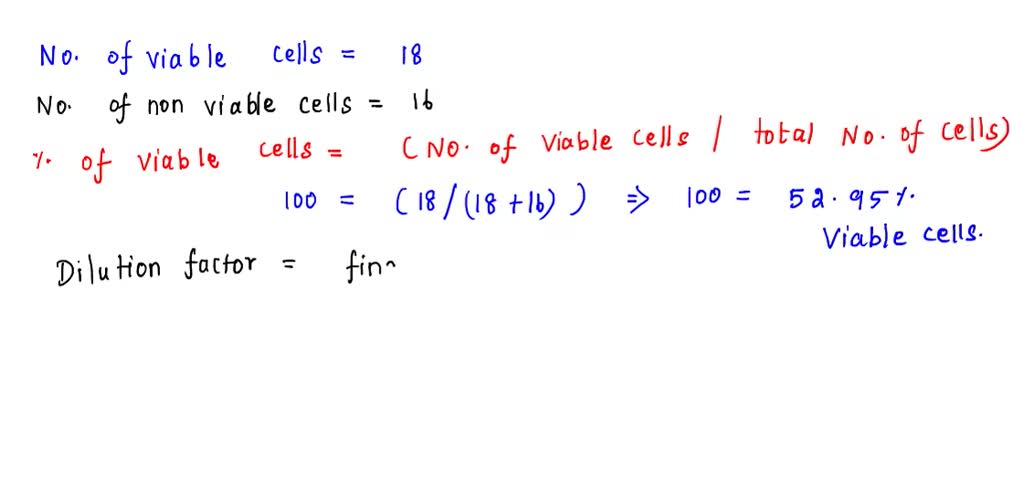 No. of viable cells = 18
No. of non viable cells = 16
% of viable cells = (No. of Viable cells / total No. of cells)
100 = (18/(18+16)) ⇒ 100 = 52.95%
Viable cells.
Dilution factor = fin